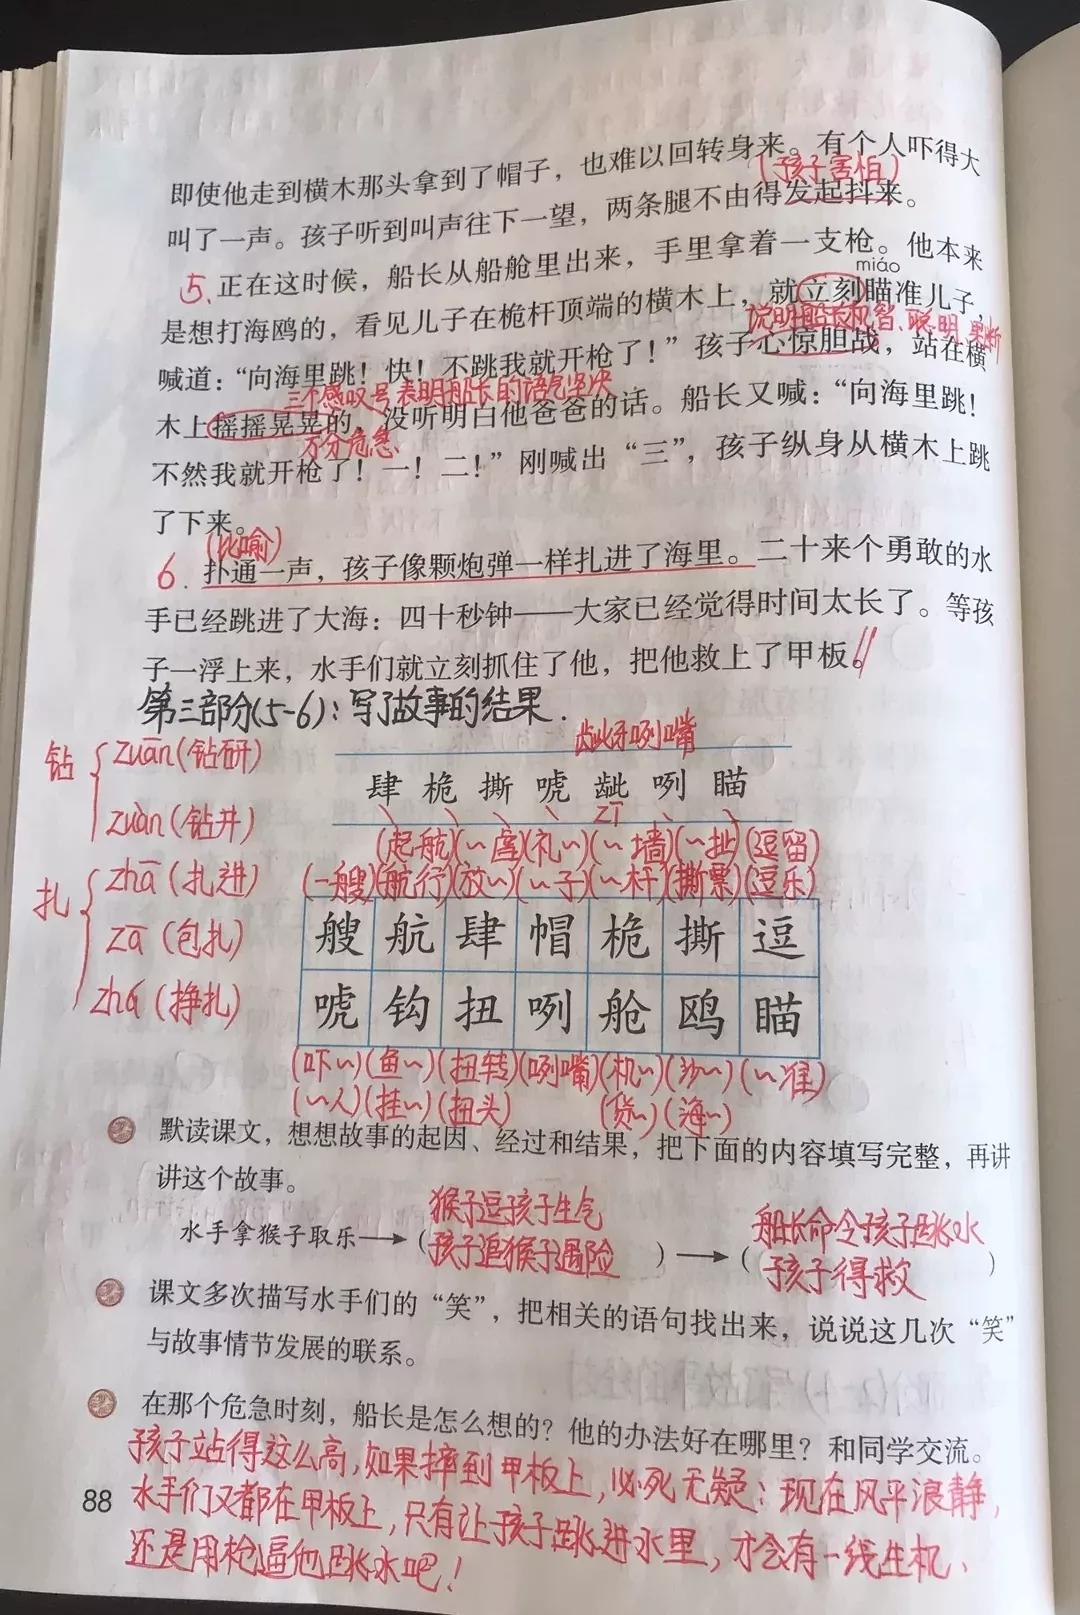 即使他走到横木那头拿到了帽子，也难以回转身来。有个人吓得大
(孩子害怕)
叫了一声。孩子听到叫声往下一望，两条腿不由得发起抖来。
5.正在这时候，船长从船舱里出来，手里拿着一支枪。他本来
miáo
是想打海鸥的，看见儿子在桅杆顶端的横木上，就立刻瞄准儿子，
说明船长机智、聪明、果断
喊道：“向海里跳！快！不跳我就开枪了！”孩子心惊胆战，站在横
三个感叹号表明船长的语气坚决
木上摇摇晃晃的，没听明白他爸爸的话。船长又喊：“向海里跳！
万分危急
不然我就开枪了！一！二！”刚喊出“三”，孩子纵身从横木上跳
了下来。
(比喻)
6.扑通一声，孩子像颗炮弹一样扎进了海里。二十来个勇敢的水
手已经跳进了大海：四十秒钟——大家已经觉得时间太长了。等孩
子一浮上来，水手们就立刻抓住了他，把他救上了甲板。
第三部分(5-6)：写了故事的结果.
钻
zuān(钻研)
zuàn(钻井)
扎
zhā(扎进)
zā(包扎)
zhá(挣扎)
龇牙咧嘴
肆 桅 撕 唬 龇 咧 瞄
zī
(起航)(~虐)(礼~)(~墙)(~扯)(逗留)
(一艘)(航行)(放~)(~子)(~杆)(撕票)(逗乐)
艘 航 肆 帽 桅 撕 逗
唬 钩 扭 咧 舱 鸥 瞄
(吓~)(鱼~)(扭转)(咧嘴)(机~)(沙~)(~准)
(~人)(挂~)(扭头)(货~)(海~)
默读课文，想想故事的起因、经过和结果，把下面的内容填写完整，再讲
讲这个故事。
猴子逗孩子生气
船长命令孩子跳水
水手拿猴子取乐→(孩子追猴子遇险)→(孩子得救)
课文多次描写水手们的“笑”，把相关的语句找出来，说说这几次“笑”
与故事情节发展的联系。
在那个危急时刻，船长是怎么想的？他的办法好在哪里？和同学交流。
孩子站得这么高，如果摔到甲板上，必死无疑；现在风平浪静，
88
水手们又都在甲板上，只有让孩子跳进水里，才会有一线生机、
还是用枪逼他跳水吧！